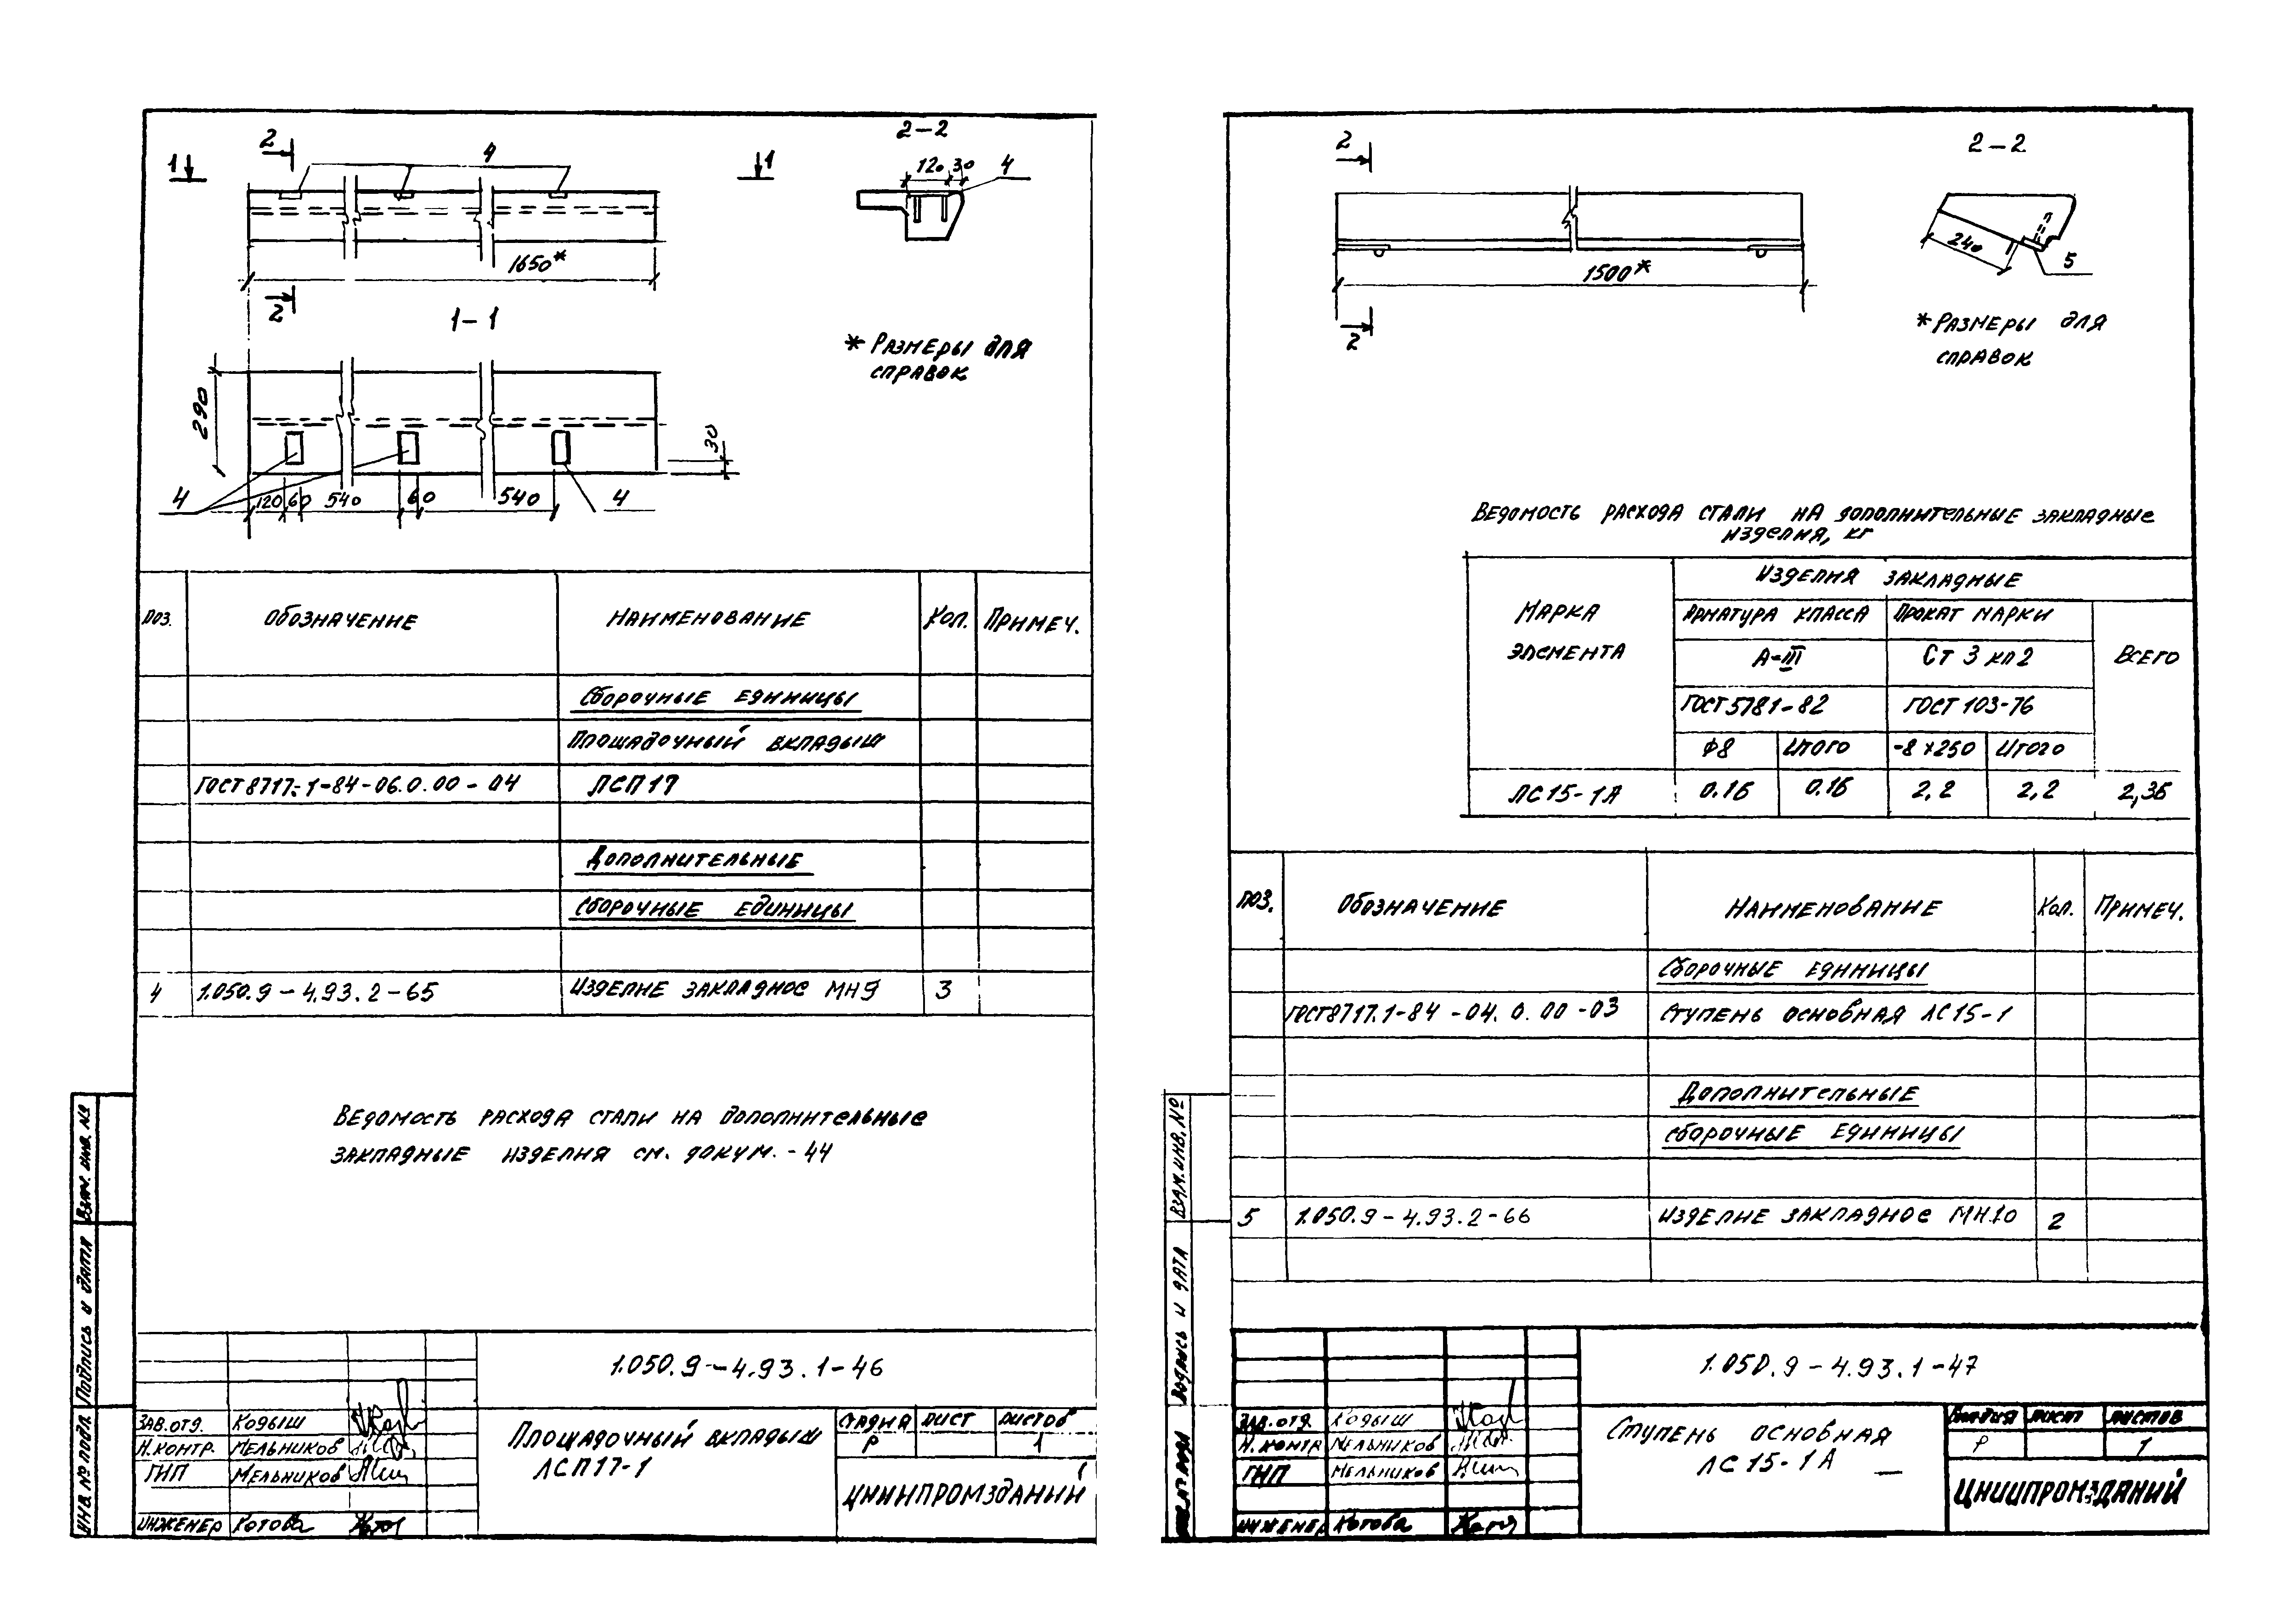 2
1
4
1
2-2
120 30
4
1650*
2
1-1
* Размеры для
справок
290
30
4
120 60 540 60 540
4
Поз. Обозначение Наименование Кол. Примеч.
Сборочные единицы
Площадочный вкладыш
ГОСТ 8717.1-84-06.0.00-04 ЛСП17
Дополнительные
сборочные единицы
4 1.050.9-4.93.2-65 Изделие закладное МН9 3
Ведомость расхода стали на дополнительные
закладные изделия см. докум. -44
Взам. инв. №
Подпись и дата
Инв. № подл.
1.050.9-4.93.1-46
Зав. отд. Кодыш
Н.контр. Мельников
ГИП Мельников
Инженер Котова
Площадочный вкладыш
ЛСП17-1
Стадия Лист Листов
Р 1
ЦНИИПРОМЗДАНИЙ
2
2-2
240
5
1500*
2
* Размеры для
справок
Ведомость расхода стали на дополнительные закладные
изделия, кг
Марка
элемента
Изделия закладные
Арматура класса Прокат марки
А-III Ст 3 кп2 Всего
ГОСТ 5781-82 ГОСТ 103-76
Ф8 Итого -8х250 Итого
ЛС15-1А 0.16 0.16 2,2 2,2 2,36
Поз. Обозначение Наименование Кол. Примеч.
Сборочные единицы
ГОСТ 8717.1-84-04.0.00-03 Ступень основная ЛС15-1
Дополнительные
сборочные единицы
5 1.050.9-4.93.2-66 Изделие закладное МН10 2
Взам. инв. №
Подпись и дата
1.050.9-4.93.1-47
Зав. отд. Кодыш
Н.контр Мельников
ГИП Мельников
Инженер Котова
Ступень основная
ЛС15-1А
Стадия Лист Листов
Р 1
ЦНИИПРОМЗДАНИЙ